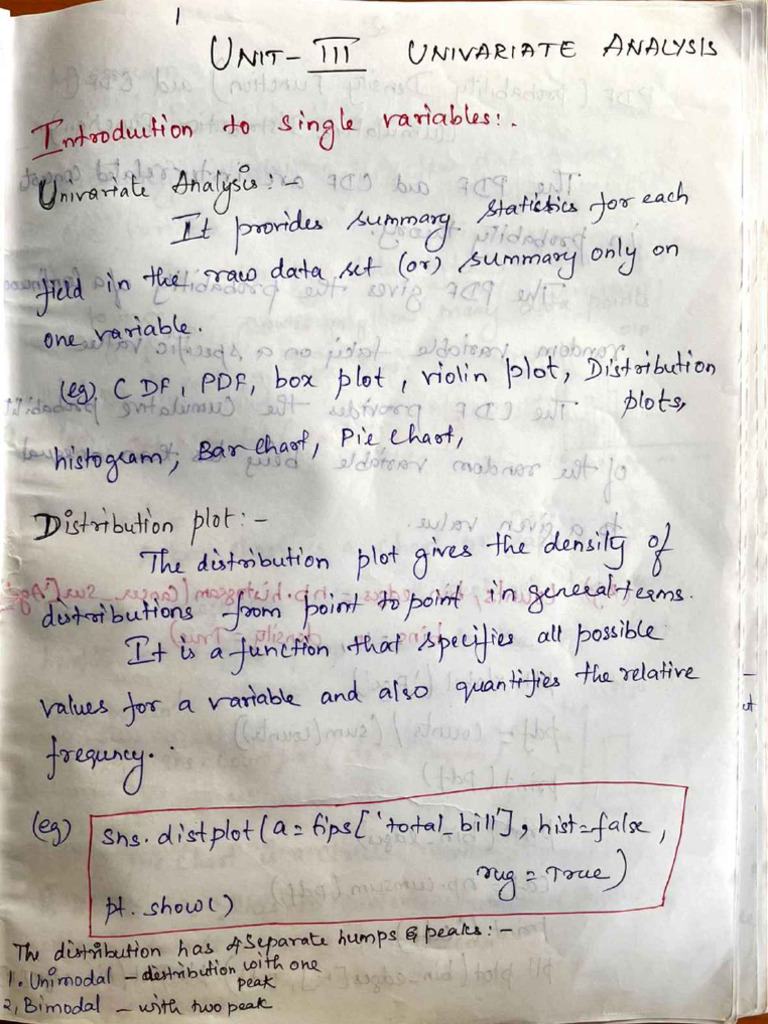 1
UNIT-III UNIVARIATE ANALYSIS
Introduction to single variables:.
Univariate Analysis:-
It provides summary statistics for each
field in the raw data set (or) summary only on
one variable.
(eg) CDF, PDF, box plot, violin plot, Distribution
plots,
histogram, Bar chart, Pie chart,
Distribution plot:-
The distribution plot gives the density of
distributions from point to point in general terms.
It is a function that specifies all possible
values for a variable and also quantifies the relative
frequncy.
(eg) sns.distplot(a=tips['total_bill'], hist=false,
rug=True)
pt.show()
The distribution has 4 separate humps & peaks:-
1. Unimodal - distribution with one
peak
2, Bimodal - with two peak